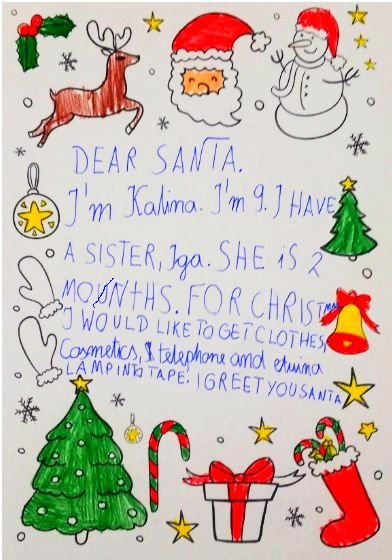 DEAR SANTA.
I'm Kalina. I'm 9. I HAVE
A SISTER, Iga. SHE iS 2
MOUNtHS. FOR CHRISTmas
I WOULD LIKE TO GET CLOTHES,
Cosmetics, telephone and
LAMP INTO TAPE. I GREET YOU SANTA